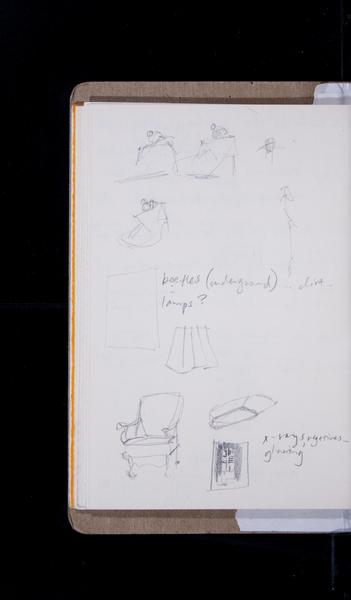 beetles (underground) .. dirt -
lamps?
x-rays, negatives -
glowing